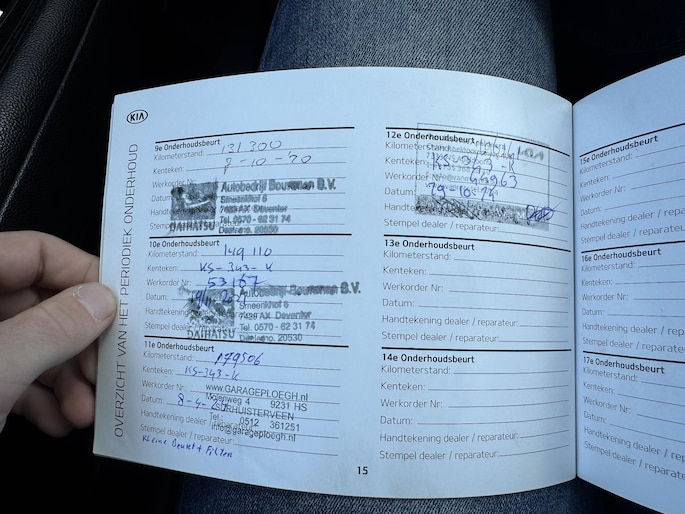 KIA
OVERZICHT VAN HET PERIODIEK ONDERHOUD
9e Onderhoudsbeurt
Kilometerstand: 131 300
Kenteken: 7-10-'20
Werkorder Nr:
Datum:
Handtekening
Stempel dealer / reparateur:
Autobedrijf Bouwman B.V.
Smeenkhof 6
7423 AX Deventer
Tel. 0570 - 62 31 74
Dealerno. 20530
DAIHATSU
10e Onderhoudsbeurt
Kilometerstand: 149 110
Kenteken: KS-343-K
Werkorder Nr: 53167
Datum:
Handtekening
Stempel dealer
Autobedrijf Bouwman B.V.
Smeenkhof 6
7423 AX Deventer
Tel. 0570 - 62 31 74
Dealerno. 20530
DAIHATSU
11e Onderhoudsbeurt
Kilometerstand: 179506
Kenteken: KS-343-K
Werkorder Nr:
Datum: 8-4-
Handtekening dealer
Stempel dealer / reparateur:
www.GARAGEPLOEGH.nl
9231 HS
SURHUISTERVEEN
Tel.: 0512 361251
info@garageploegh.nl
Kleine Beurt + Filters
12e Onderhoudsbeurt
Kilometerstand:
Kenteken:
Werkorder Nr:
Datum: 29-10-24
Handtekening
Stempel dealer / reparateur:
13e Onderhoudsbeurt
Kilometerstand:
Kenteken:
Werkorder Nr:
Datum:
Handtekening dealer / reparateur:
Stempel dealer / reparateur:
14e Onderhoudsbeurt
Kilometerstand:
Kenteken:
Werkorder Nr:
Datum:
Handtekening dealer / reparateur:
Stempel dealer / reparateur:
15
15e Onderhoudsbeurt
Kilometerstand:
Kenteken:
Werkorder Nr:
Datum:
Handtekening dealer
Stempel dealer / repara
16e Onderhoudsbeurt
Kilometerstand:
Kenteken:
Werkorder Nr:
Datum:
Handtekening dealer
Stempel dealer / reparat
17e Onderhoudsbeurt
Kilometerstand:
Kenteken:
Werkorder Nr:
Datum:
Handtekening dealer / re
Stempel dealer / reparate